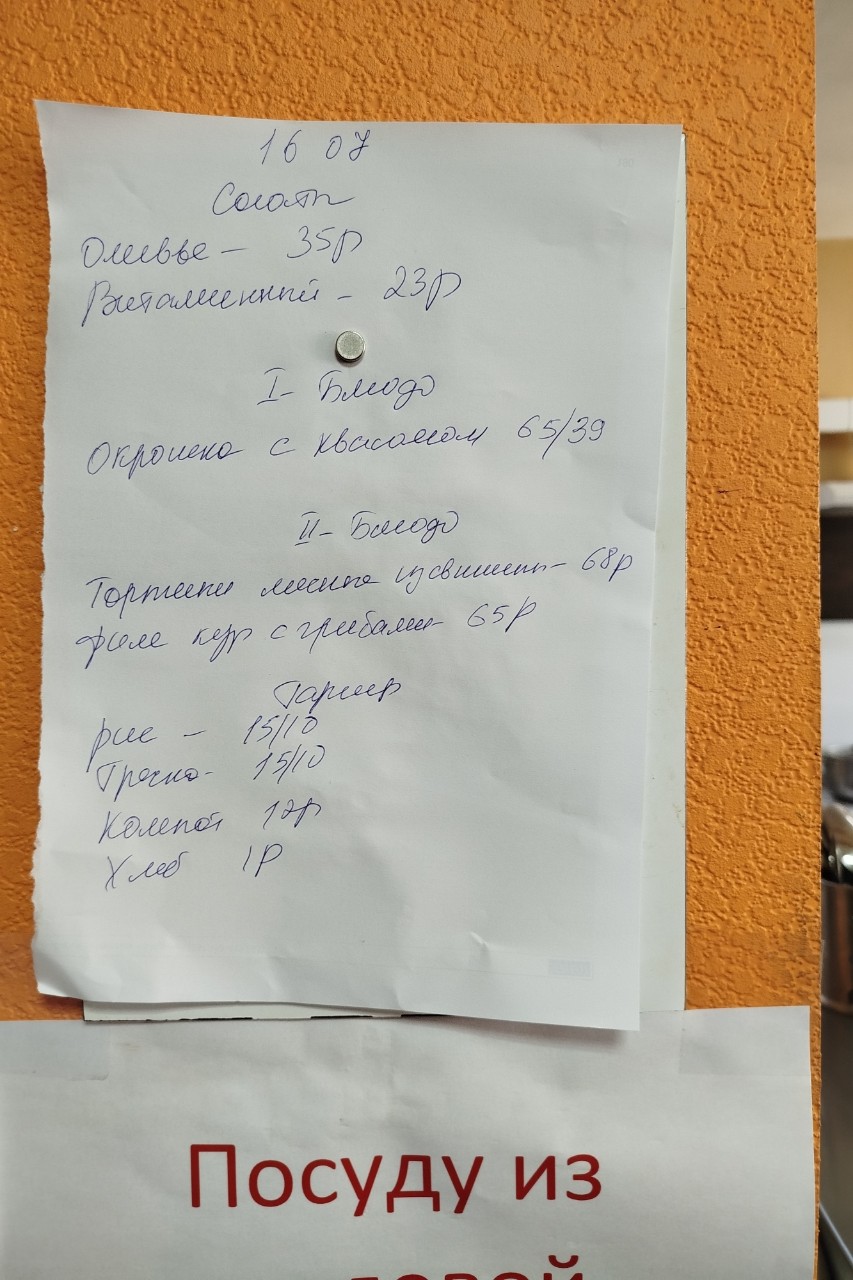 16 07
Салаты
Оливье – 35р
Витаминный – 23р
I- Блюдо
Окрошка с квасом 65/39
II- Блюдо
мясные из свинины – 68р
филе кур с грибами 65р
Гарнир
рис – 15/10
Гречка- 15/10
Компот 12р
Хлеб 1р
Посуду из